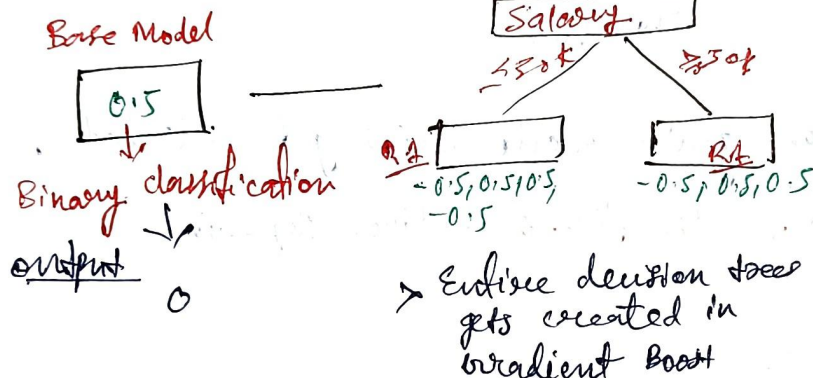 Base Model
0.5
Binary classification
output
0
Salary
≤50K
≥50K
R1
-0.5, 0.5, 0.5,
-0.5
R1
-0.5, 0.5, 0.5
> Entire decision trees
gets created in
Gradient Boost